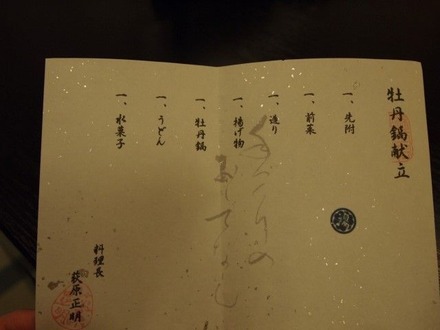 牡丹鍋献立
一、先附
一、前菜
一、造り
一、揚げ物
一、牡丹鍋
一、うどん
一、水菓子
料理長
荻原正明